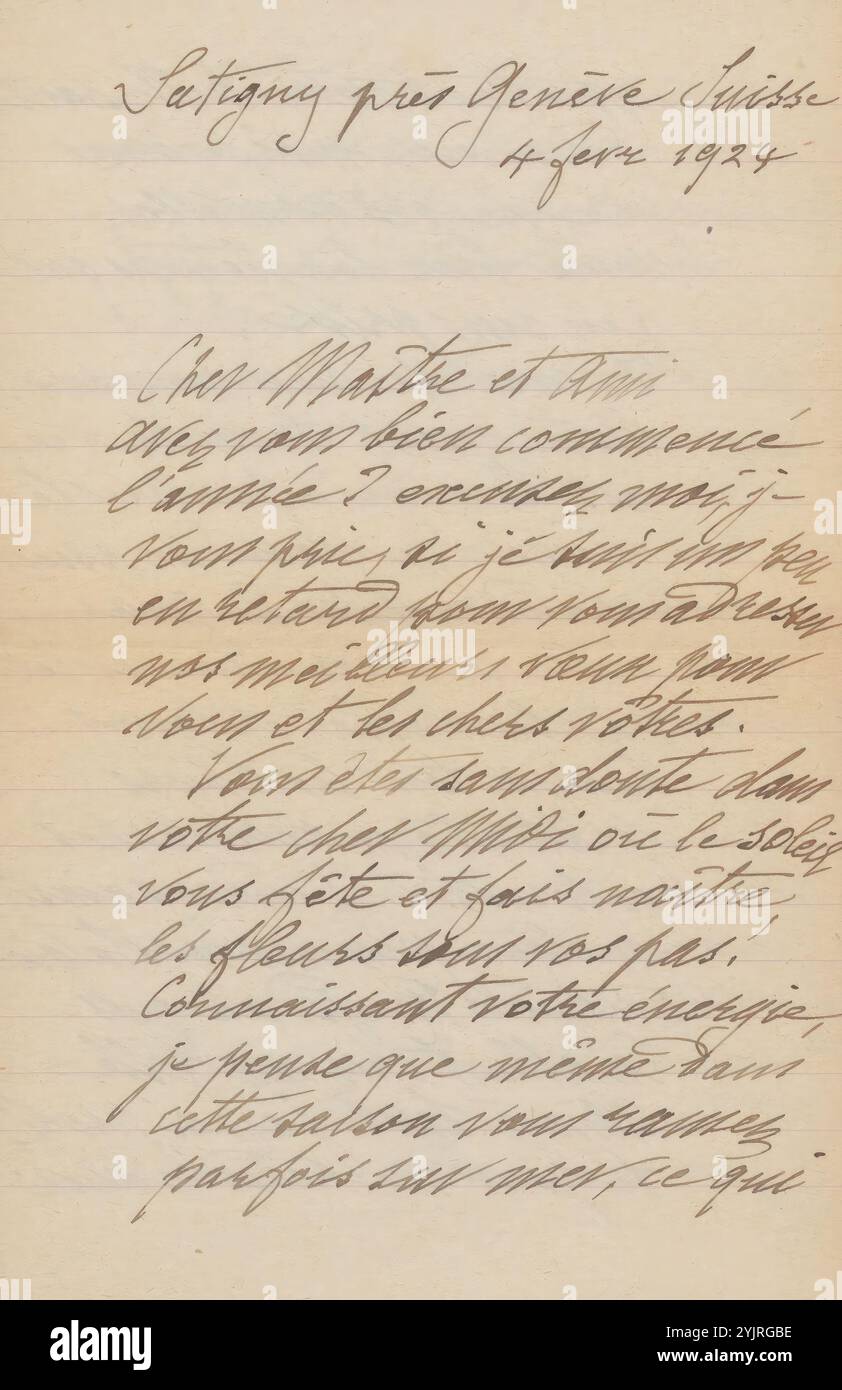 Satigny près Genève Suisse
4 fevr 1924
Cher Maître et Ami
avez vous bien commencé
l'année? excusez moi, je
vous prie, si je suis un peu
en retard pour vous adresser
nos meilleurs vœux pour
vous et les chers vôtres.
Vous êtes sans doute dans
votre cher Midi où le soleil
vous fête et fais naître,
les fleurs sous vos pas.
Connaissant votre énergie,
je pense que même dans
cette saison vous ramez
parfois sur mer, ce qui
alamy
Image ID: 2YJRGBE
www.alamy.com